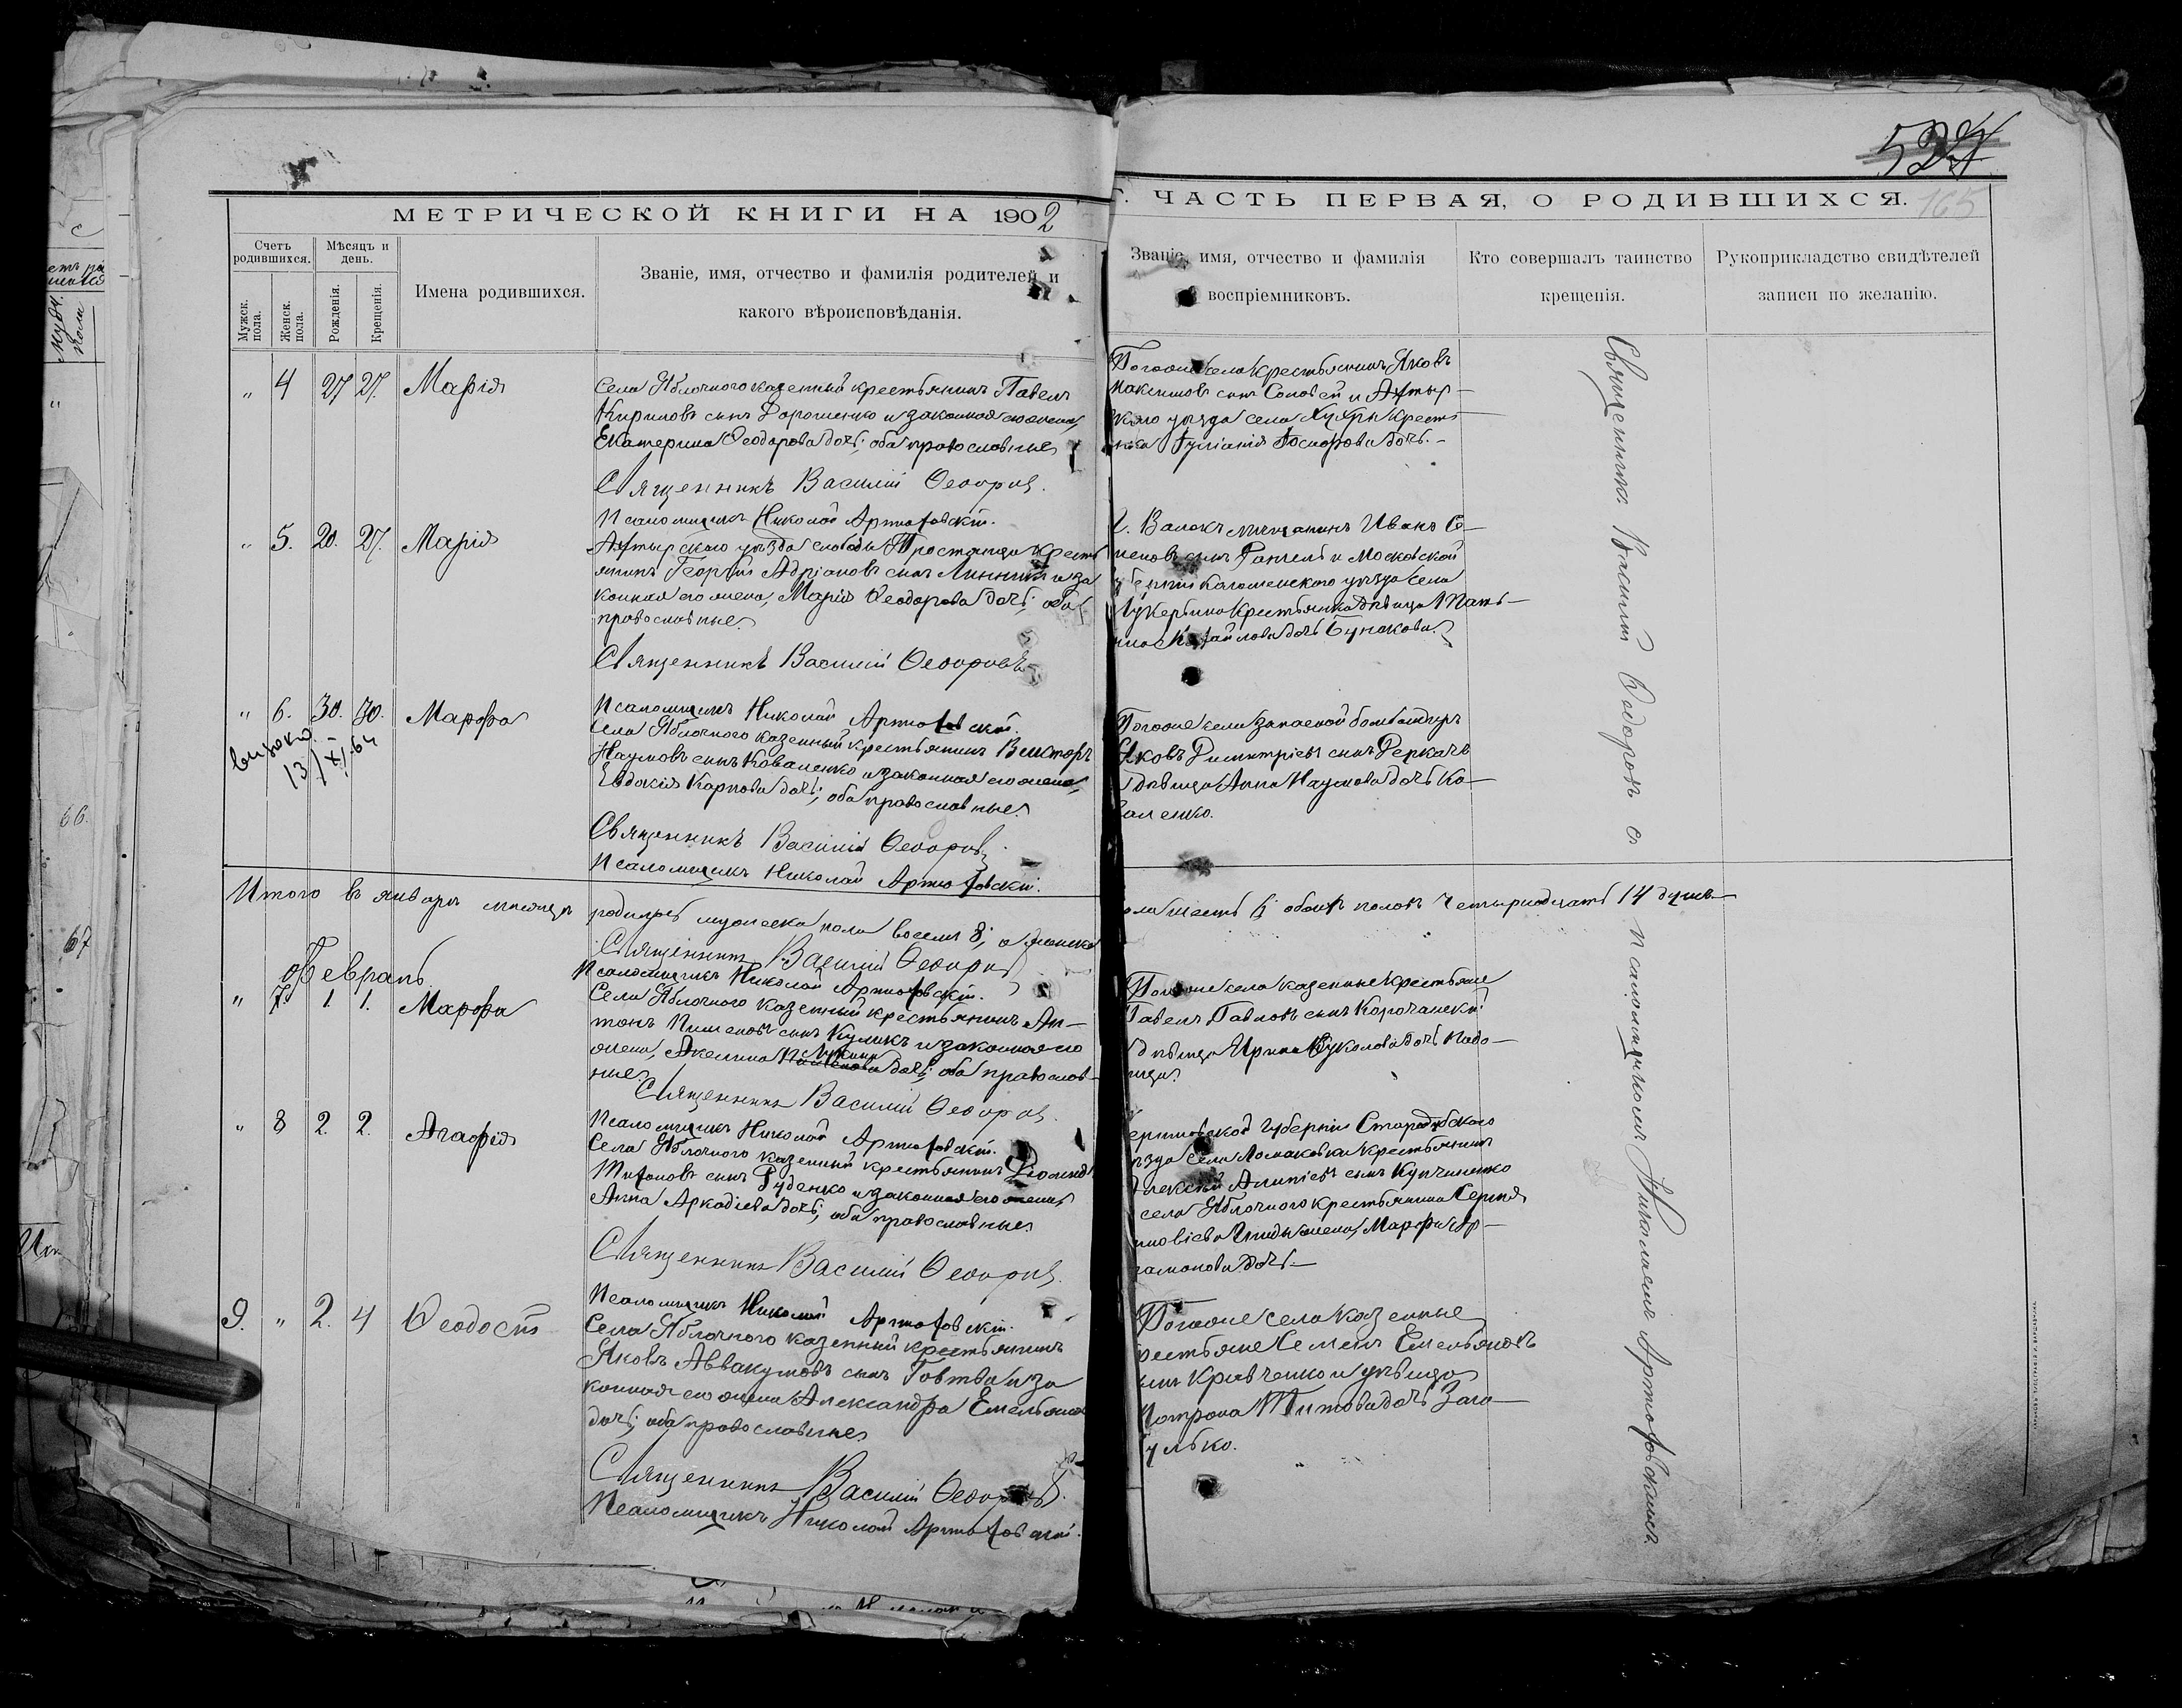 524
165
МЕТРИЧЕСКОЙ КНИГИ НА 1902
Г. ЧАСТЬ ПЕРВАЯ, О РОДИВШИХСЯ.
Счетъ родившихся.
Мѣсяцъ и день.
Мужск. пола.
Женск. пола.
Рожденія.
Крещенія.
Имена родившихся.
Званіе, имя, отчество и фамилія родителей и
какого вѣроисповѣданія.
Званіе, имя, отчество и фамилія
воспріемниковъ.
Кто совершалъ таинство
крещенія.
Рукоприкладство свидѣтелей
записи по желанію.
" 4 27 27. Марія
Села Яблочного казенный крестьянинъ Павелъ
Кириловъ сынъ Дорошенко и законная его жена,
Екатерина Ѳеодорова дочь; оба православные
Священникъ Василій Ѳеодоровъ.
Псаломщикъ Николай Артюховскій.
Тогоже села крестьянинъ Яковъ
Максимовъ сынъ Соловей и Ахтыр-
скаго уѣзда села крестья
Іосифова дочь.
" 5. 20. 27. Марія
Ахтырскаго уѣзда слободы Тростянца кресть
янинъ Георгій Адріановъ сынъ Линникъ и за
конная его жена, Марія Ѳеодорова дочь; оба
православные.
Священникъ Василій Ѳеодоровъ
Псаломщикъ Николай Артюховскій.
Г. Валокъ мѣщанинъ Иванъ Се-
меновъ сынъ и Московской
губерніи Коломенскаго уѣзда села
крестьянка дѣвица
дочь
" 6. 30. 30. Марфа
13/XI.64
Села Яблочного казенный крестьянинъ Викторъ
Наумовъ сынъ Коваленко и законная его жена,
Евдокія Карпова дочь; оба православные.
Священникъ Василій Ѳеодоровъ
Псаломщикъ Николай Артюховскій.
Тогоже села запасной бомбардиръ
Яковъ Димитріевъ сынъ Деркачъ
и дѣвица Анна Наумова дочь Ко-
валенко.
Итого въ январѣ мѣсяцѣ родилось мужеска пола восемь 8; а женска
пола шесть 6 обоихъ половъ четырнадцать 14 душъ
Священникъ Василій Ѳеодоровъ
Псаломщикъ Николай Артюховскій.
Февраль.
" 7. 1. 1. Марфа
Села Яблочного казенный крестьянинъ Ан-
тонъ Пименовъ сынъ Куликъ и законная его
жена, Акелина дочь; оба православ-
ные.
Священникъ Василій Ѳеодоровъ.
Псаломщикъ Николай Артюховскій.
Тогоже села казенные крестьяне
Павелъ Павловъ сынъ Корочанскій
и дѣвица Ирина Вуколова дочь
" 8 2. 2. Агафія
Села Яблочного казенный крестьянинъ Діомидъ
Тихоновъ сынъ Руденко и законная его жена,
Анна Аркадіева дочь; оба православные
Священникъ Василій Ѳеодоровъ.
Псаломщикъ Николай Артюховскій.
Черниговской губерніи Стародубскаго
уѣзда села Ломаковки крестьянинъ
Алексѣй сынъ Купчиненко
и села Яблочного крестьянина Сергія
жена, Марфа
дочь.
9. " 2. 4 Ѳеодосій
Села Яблочного казенный крестьянинъ
Яковъ Аввакумовъ сынъ Говтва и за
конная его жена Александра Емельянова
дочь; оба православные
Священникъ Василій Ѳеодоровъ.
Псаломщикъ Николай Артюховскій.
Тогоже села казенные
крестьяне Семенъ Емельяновъ
сынъ Кравченко и дѣвица
Матрона Титова дочь Заго-
рулько.
Священникъ Василій Ѳеодоровъ съ
псаломщикомъ Николаемъ Артюховскимъ
66.
67